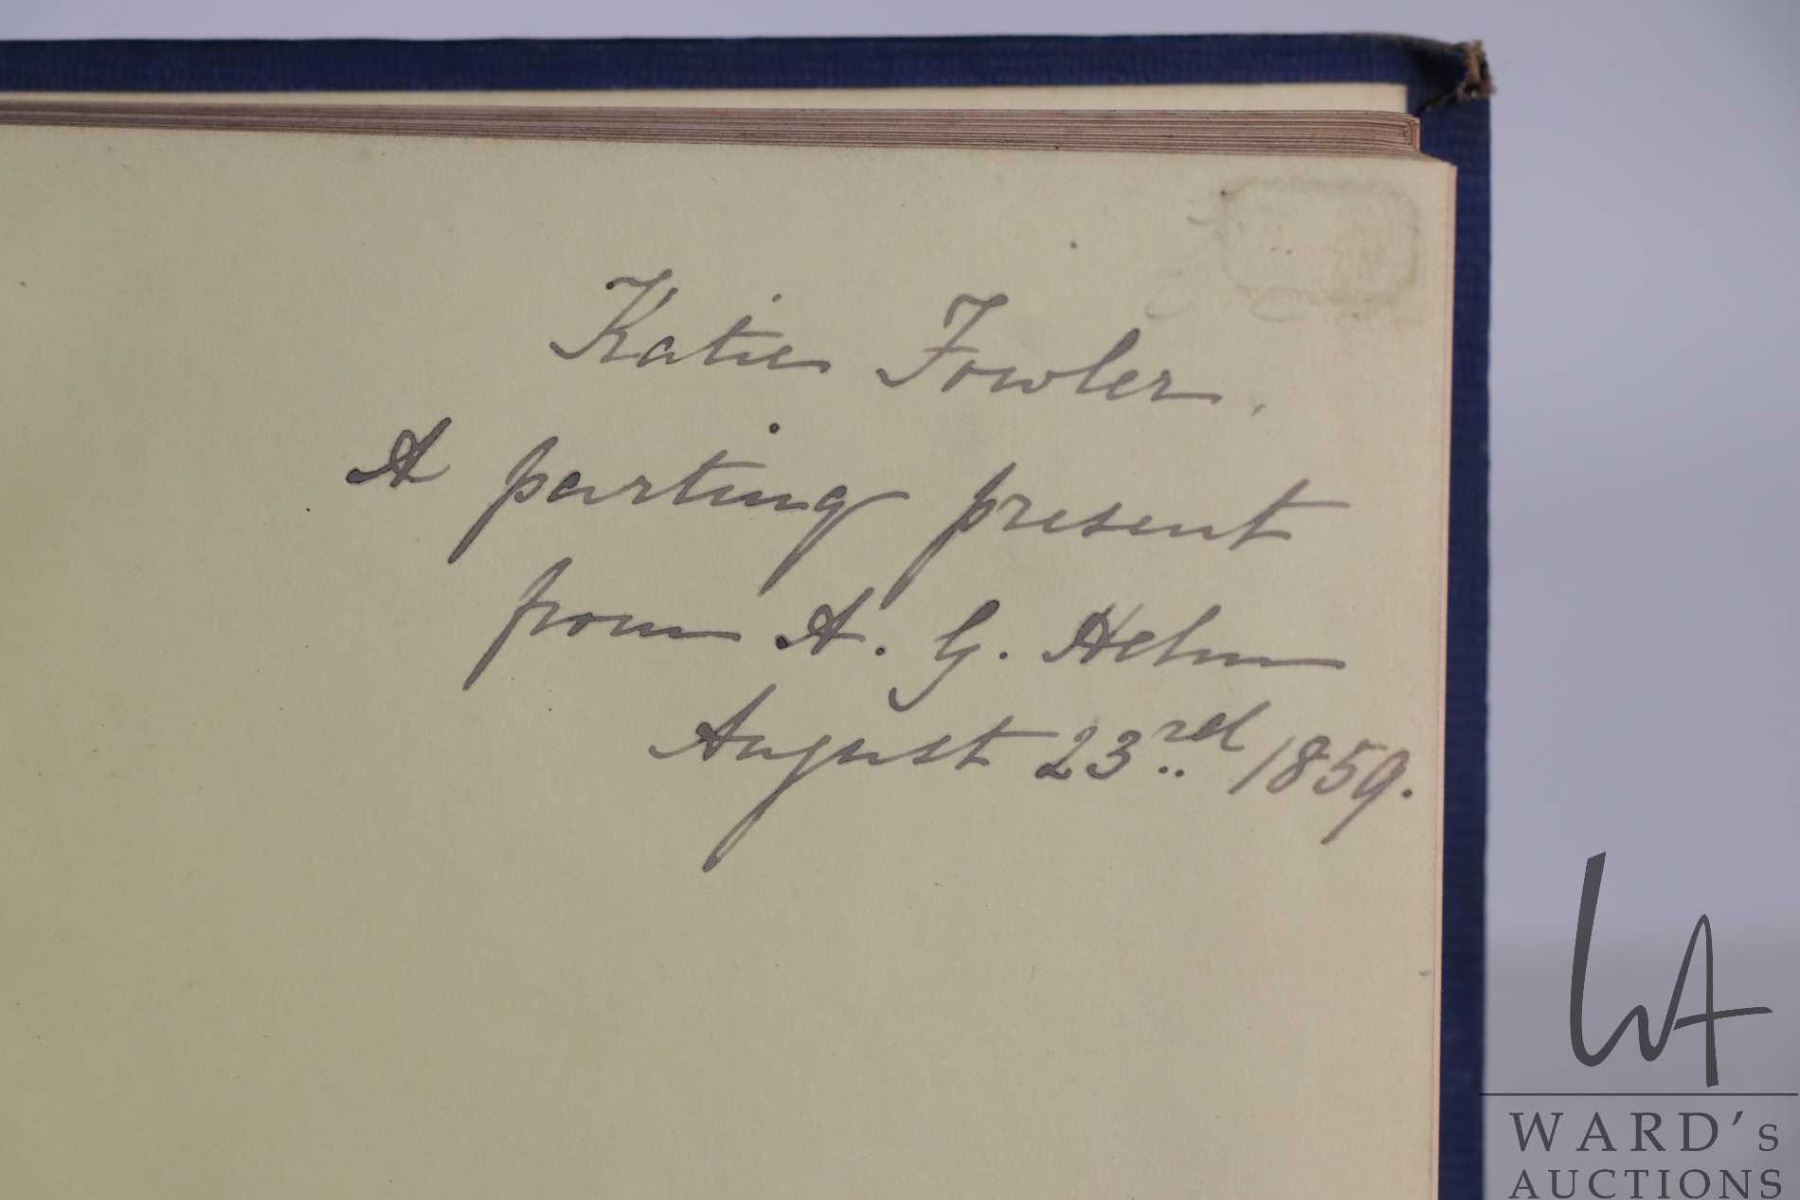 Katie Fowler.
A parting present
from A. G. Helm
August 23rd 1859.
WARD's
AUCTIONS